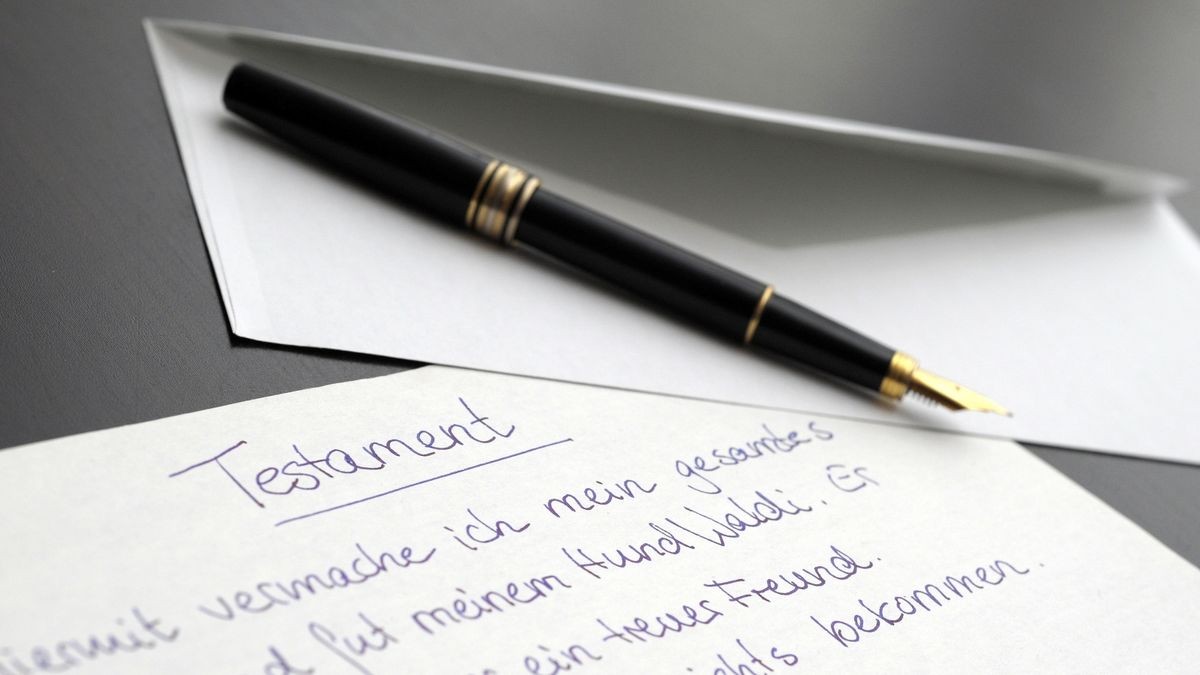 Testament
hiermit vermache ich mein gesamtes
und Gut meinem Hund Waldi. Er
ein treues Freund.
nichts bekommen.